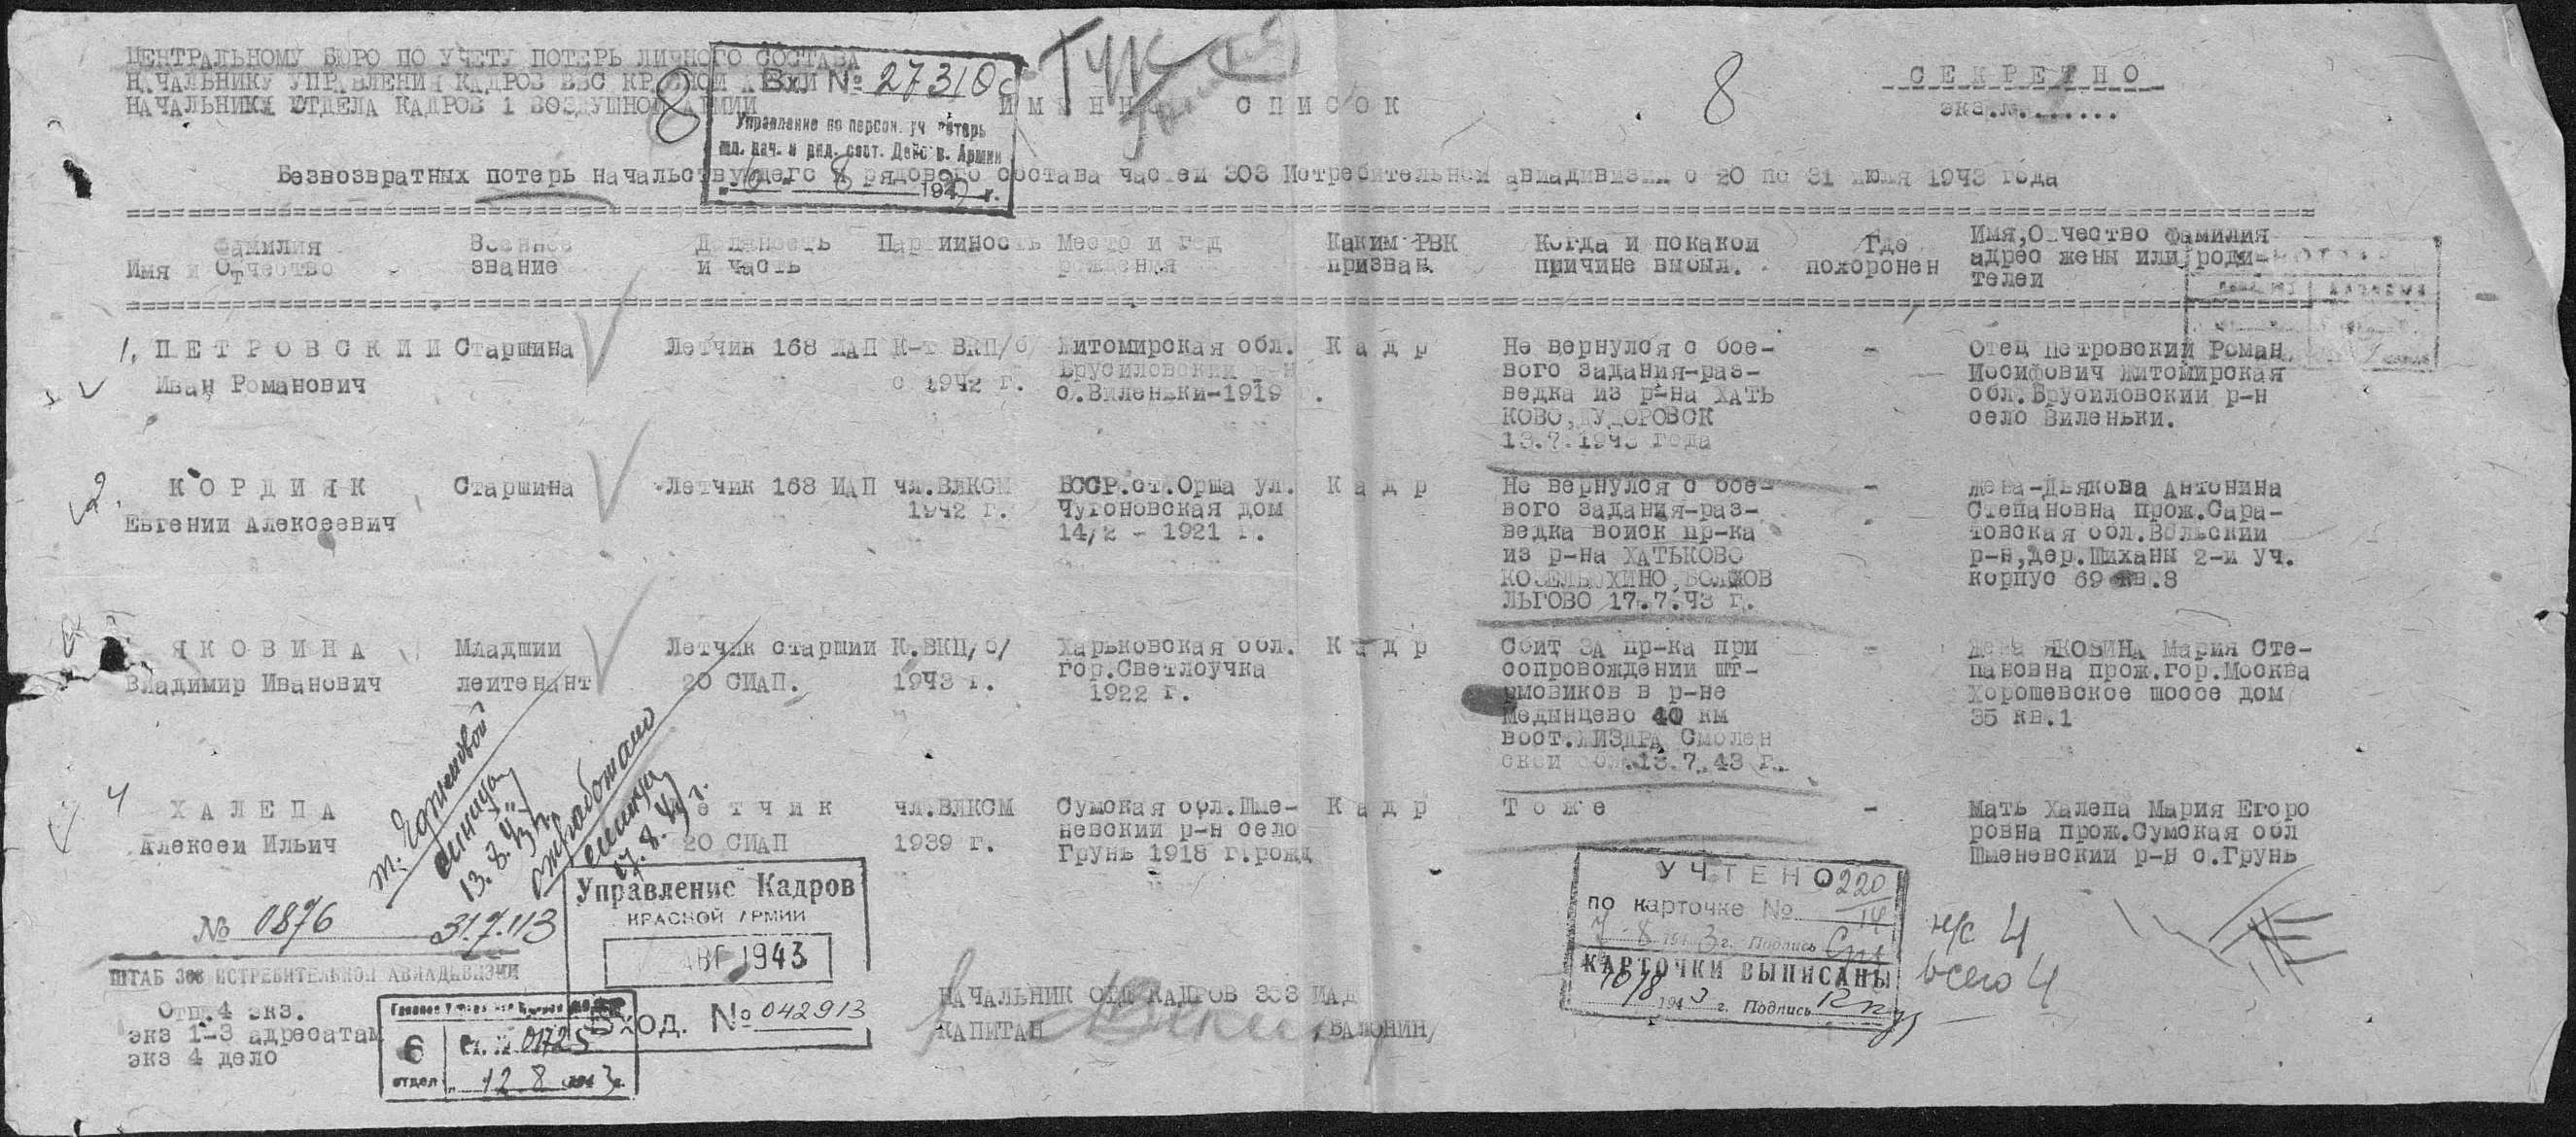 ЦЕНТРАЛЬНОМУ БЮРО ПО УЧЕТУ ПОТЕРЬ ЛИЧНОГО СОСТАВА
НАЧАЛЬНИКУ УПРАВЛЕНИЯ КАДРОВ ВВС КРАСНОЙ АРМИИ
НАЧАЛЬНИКУ ОТДЕЛА КАДРОВ 1 ВОЗДУШНОЙ АРМИИ
8
Вх № 27310с
Управление по персон. уч потерь
мл. нач. и ряд. сост. Дейс в. Армии
"6" 8 194 г.
8
СЕКРЕТНО
экз.№.......
ИМЕННОЙ СПИСОК
Безвозвратных потерь начальствующего и рядового состава частей 303 Истребительной авиадивизии с 20 по 31 июля 1943 года
Фамилия Имя и Отчество
Военное звание
Должность и часть
Партийность
Место и год рождения
Каким РВК призван
Когда и покакой причине выбыл.
Где похоронен
Имя,Отчество фамилия адрес жены или роди-
телей
1. ПЕТРОВСКИЙ Старшина Летчик 168 ИАП К-т ВКП/б Житомирская обл. Кадр Не вернулся с бое- - Отец Петровский Роман
Иван Романович с 1942 г. Брусиловский р-н вого задания-раз- Иосифович Житомирская
с.Виленьки-1919 г. ведка из р-на ХАТЬ обл.Брусиловский р-н
КОВО, село Виленьки.
13.7.1943 года
2. КОРДИЯК Старшина Летчик 168 ИАП чл.ВЛКСМ БССР.ст.Орша ул. Кадр Не вернулся с бое- - Жена-Дьякова Антонина
Евгений Алексеевич 1942 г. Чугоновская дом вого задания-раз- Степановна прож.Сара-
14/2 - 1921 г. ведка войск пр-ка товская обл.Вольский
из р-на ХАТЬКОВО р-н,дер.Шиханы 2-й уч.
БОЛХОВ корпус 69 кв.8
ЛЬГОВО 17.7.43 г.
ЯКОВИНА Младший Летчик старший К.ВКП/б/ Харьковская обл. Кадр Сбит ЗА пр-ка при - Жена ЯКОВИНА Мария Сте-
Владимир Иванович лейтенант 20 СИАП. 1943 г. гор.Светлоучка сопровождении шт- пановна прож.гор.Москва
1922 г. рмовиков в р-не Хорошевское шоссе дом
Медынцево 40 км 35 кв.1
вост.ЖИЗДРА Смолен
ской обл.13.7.43 г.
4 ХАЛЕПА Летчик чл.ВЛКСМ Сумская обл.Шме- Кадр Тоже - Мать Халепа Мария Егоро
Алексей Ильич 20 СИАП 1939 г. невский р-н село ровна прож.Сумская обл
Грунь 1918 г.рожд Шменевский р-н с.Грунь
13.8.43г.
отработано
17.8.43г.
№ 0876 31.7.43
ШТАБ 303 ИСТРЕБИТЕЛЬНОЙ АВИАДИВИЗИИ
Отп.4 экз.
экз 1-3 адресатам
экз 4 дело
Управление Кадров
КРАСНОЙ АРМИИ
АВГ 1943
Вход. № 042913
6 отдел
Вх. № 01725
"12" 8 1943 г.
НАЧАЛЬНИК ОТД КАДРОВ 303 ИАД
КАПИТАН
УЧТЕНО
по карточке № 220/14
7-8 1943 г. Подпись
КАРТОЧКИ ВЫПИСАНЫ
10/8 1943 г. Подпись
н/с 4
всего 4